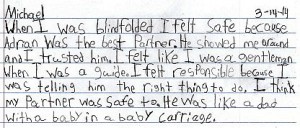 Michael 3-14-14
When I was blindfolded I felt safe because
Adrian was the best partner. He showed me around
and I trusted him. I felt like I was a gentleman
When I was a guide. I felt responsible because I
was telling him the right thing to do. I think
my partner was safe to. He was like a dad
with a baby in a baby carriage.